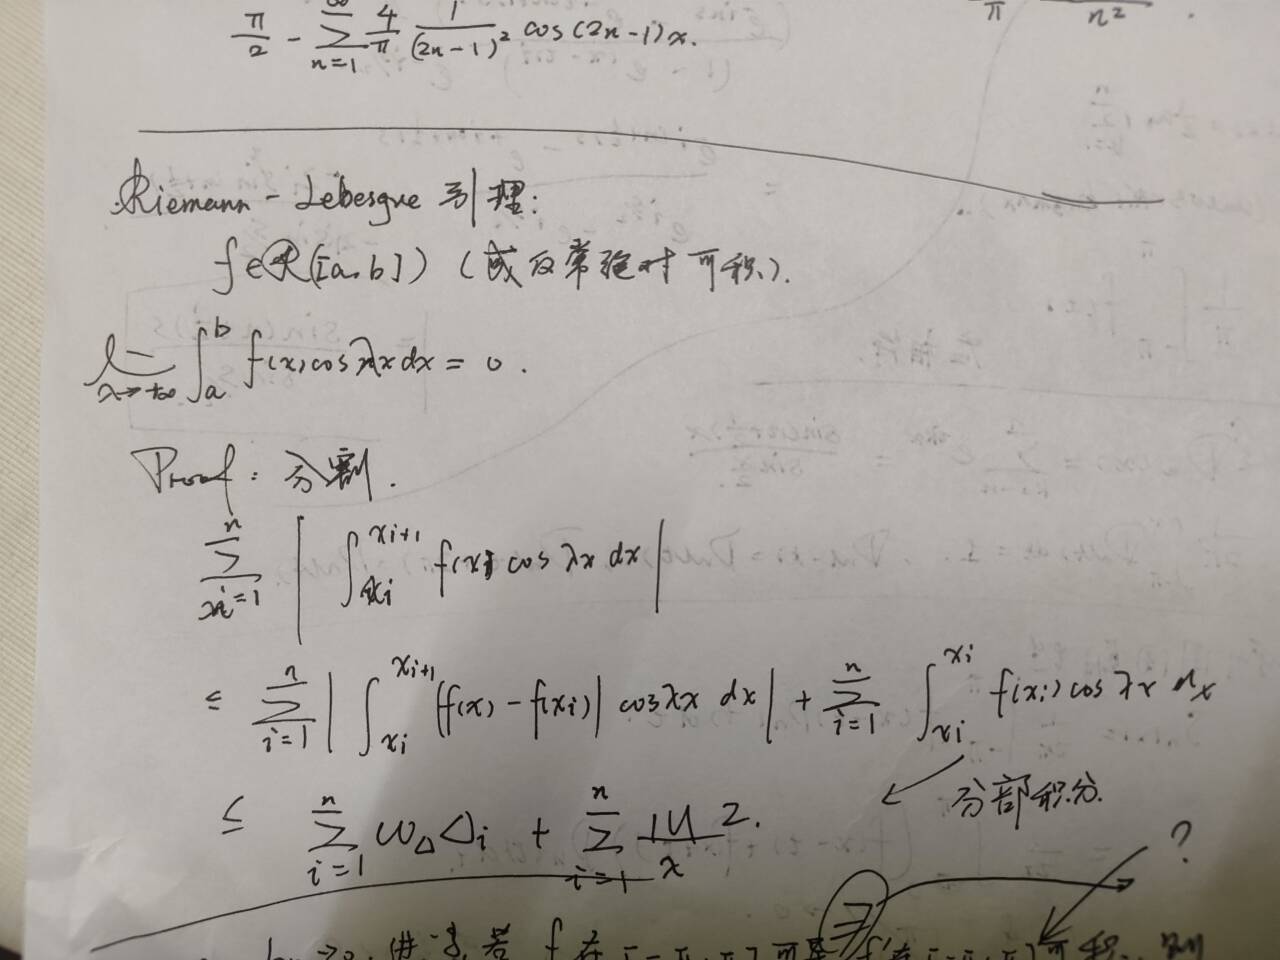 π/2 - ∑_{n=1}^{∞} 4/π 1/(2n-1)² cos(2n-1)x.
π n² .
Riemann - Lebesgue 引理:
f∈R([a,b]) (或反常绝对可积).
lim_{λ→+∞} ∫_a^b f(x)cosλx dx = 0.
Proof: 分割.
∑_{i=1}^{n} | ∫_{x_i}^{x_{i+1}} f(x) cos λx dx |
≤ ∑_{i=1}^{n} | ∫_{x_i}^{x_{i+1}} (f(x) - f(x_i)| cosλx dx | + ∑_{i=1}^{n} ∫_{x_i}^{x_i} f(x_i) cos λx dx
分部积分.
≤ ∑_{i=1}^{n} ω_Δ Δ_i + ∑_{i=1}^{n} |M|/λ 2.
?
若 f 在 [-π,π] 可 f' 在 [-π,π] 可积, 则